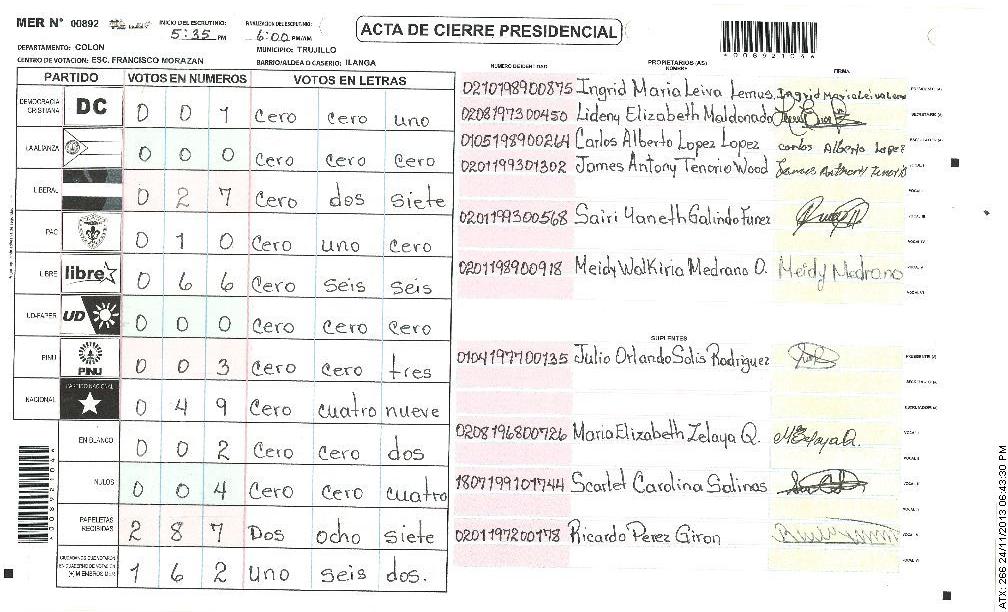 MER N° 00892
INICIO DEL ESCRUTINIO: 5:35 PM
FINALIZACION DEL ESCRUTINIO: 6:00 PM/AM
ACTA DE CIERRE PRESIDENCIAL
DEPARTAMENTO: COLON
MUNICIPIO: TRUJILLO
CENTRO DE VOTACION: ESC. FRANCISCO MORAZAN
BARRIO/ALDEA O CASERIO: ILANGA
PARTIDO VOTOS EN NUMEROS VOTOS EN LETRAS
DEMOCRACIA CRISTIANA DC 0 0 1 Cero cero uno
LA ALIANZA 0 0 0 Cero Cero Cero
LIBERAL 0 2 7 Cero dos siete
PAC 0 1 0 Cero uno cero
LIBRE libre 0 6 6 Cero seis seis
UD-FAPER UD 0 0 0 Cero Cero Cero
PINU PINU 0 0 3 Cero Cero tres
NACIONAL PARTIDO NACIONAL 0 4 9 Cero cuatro nueve
EN BLANCO 0 0 2 Cero Cero dos
NULOS 0 0 4 Cero Cero cuatro
PAPELETAS RECIBIDAS 2 8 7 Dos ocho siete
1 6 2 uno seis dos.
NUMERO DE IDENTIDAD PROPIETARIOS (AS) NOMBRE FIRMA
0210198900875 Ingrid Maria Leiva Lemus Ingrid Maria Leiva Lemus
0208197300450 Lideny Elizabeth Maldonado
0105198900264 Carlos Alberto Lopez Lopez Carlos Alberto Lopez
0201199301302 James Antony Tenorio Wood James Anthony Tenorio
0201199300568 Sairi Yaneth Galindo Funez
0201198900918 Meidy Walkiria Medrano O. Meidy Medrano
SUPLENTES
0104197700135 Julio Orlando Solis Rodriguez
0208196800726 Maria Elizabeth Zelaya Q. MEZelayaQ.
1807199101744 Scarlet Carolina Salinas
0201197200178 Ricardo Perez Giron
*00892104*
ATX: 266 24/11/2013 06:43:30 PM